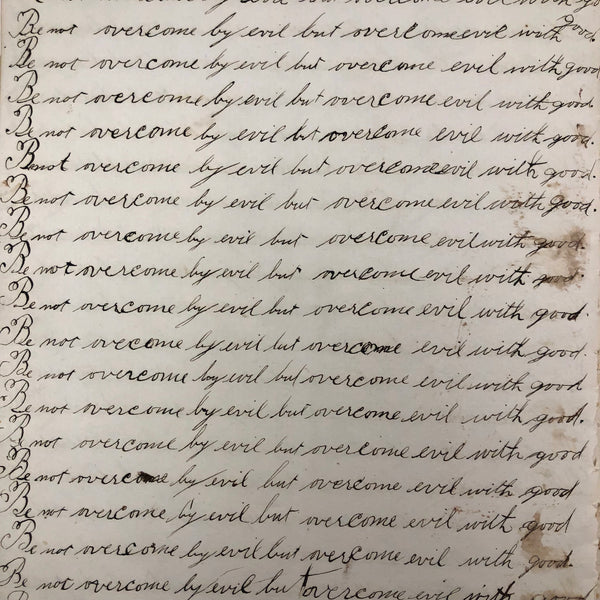 overcome evil with go
Be not overcome by evil but overcome evil with good.
Be not overcome by evil but overcome evil with good
Be not overcome by evil but overcome evil with good
Be not overcome by evil but overcome evil with good.
Be not overcome by evil but overcome evil with good.
Be not overcome by evil but overcome evil with good.
Be not overcome by evil but overcome evil with good.
Be not overcome by evil but overcome evil with good.
Be not overcome by evil but overcome evil with good.
Be not ovecome by evil but overcome evil with good.
Be not overcome by evil but overcome evil with good
Be not overcome by evil but overcome evil with good.
Be not overcome by evil but overcome evil with good
Be not overcome by evil but overcome evil with good
Be not overcome by evil but overcome evil with good
Be not overcome by evil but overcome evil with good.
Be not overcome by evil but overcome evil with